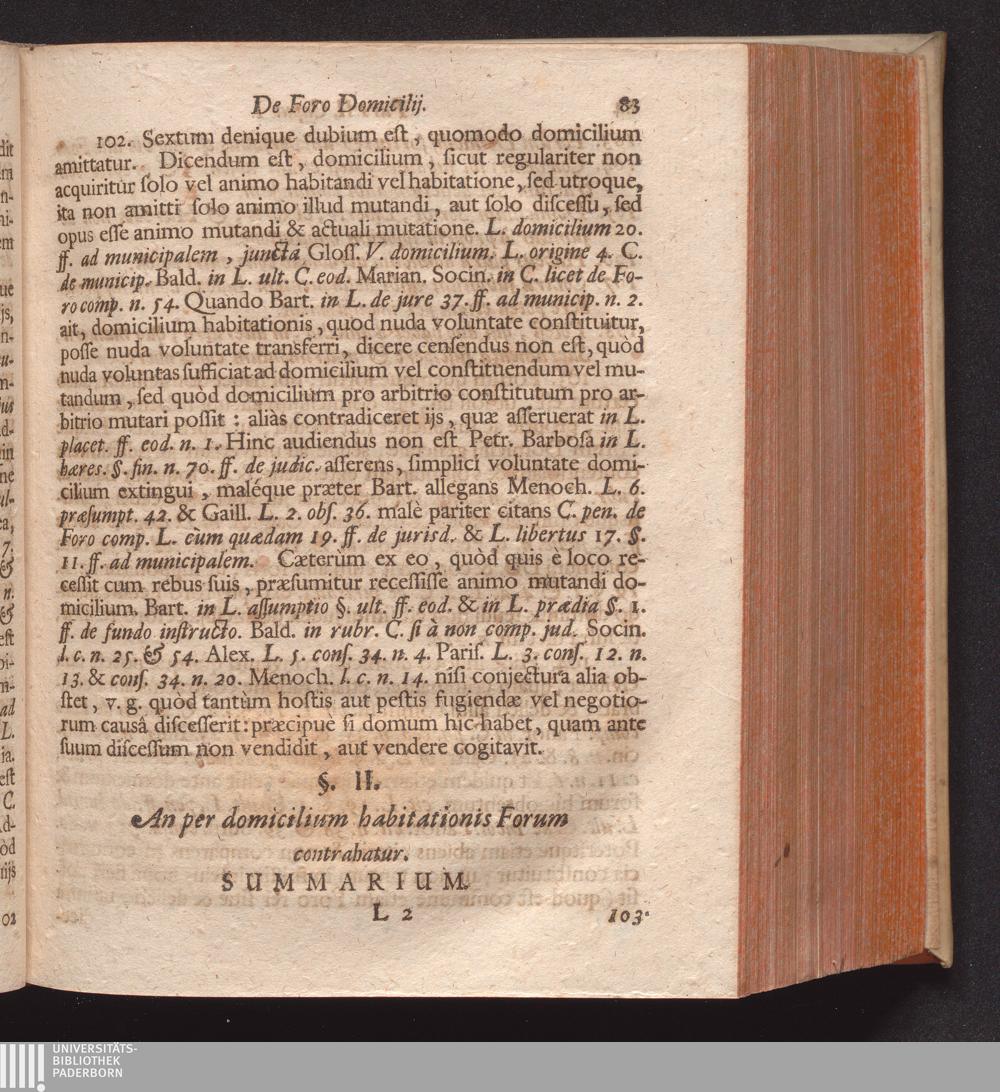 De Foro Domicilij. 83
102. Sextum denique dubium eſt, quomodo domicilium
amittatur. Dicendum eſt, domicilium, ſicut regulariter non
acquiritur ſolo vel animo habitandi vel habitatione, ſed utroque,
ita non amitti ſolo animo illud mutandi, aut ſolo diſceſſu, ſed
opus eſſe animo mutandi & actuali mutatione. L. domicilium 20.
ff. ad municipalem, junctâ Gloſſ. V. domicilium. L. origine 4. C.
de municip. Bald. in L. ult. C. eod. Marian. Socin. in C. licet de Fo-
ro comp. n. 54. Quando Bart. in L. de jure 37. ff. ad municip. n. 2.
ait, domicilium habitationis, quod nuda voluntate conſtituitur,
poſſe nuda voluntate transferri, dicere cenſendus non eſt, quòd
nuda voluntas ſufficiat ad domicilium vel conſtituendum vel mu-
tandum, ſed quòd domicilium pro arbitrio conſtitutum pro ar-
bitrio mutari poſſit : aliàs contradiceret ijs, quæ aſſeruerat in L.
placet. ff. eod. n. 1. Hinc audiendus non eſt Petr. Barboſa in L.
hæres. §. fin. n. 70. ff. de judic. aſſerens, ſimplici voluntate domi-
cilium extingui, maléque præter Bart. allegans Menoch. L. 6.
præſumpt. 42. & Gaill. L. 2. obſ. 36. malè pariter citans C. pen. de
Foro comp. L. cùm quædam 19. ff. de jurisd. & L. libertus 17. §.
11. ff. ad municipalem. Cæterùm ex eo, quòd quis è loco re-
ceſſit cum rebus ſuis, præſumitur receſſiſſe animo mutandi do-
micilium. Bart. in L. aſſumptio §. ult. ff. eod. & in L. prædia §. 1.
ff. de fundo inſtructo. Bald. in rubr. C. ſi à non comp. jud. Socin.
l. c. n. 25. & 54. Alex. L. 5. conſ. 34. n. 4. Pariſ. L. 3. conſ. 12. n.
13. & conſ. 34. n. 20. Menoch. l. c. n. 14. niſi conjectura alia ob-
ſtet, v. g. quòd tantùm hoſtis aut peſtis fugiendæ vel negotio-
rum causâ diſceſſerit: præcipuè ſi domum hîc habet, quam ante
ſuum diſceſſum non vendidit, aut vendere cogitavit.
§. II.
An per domicilium habitationis Forum
contrahatur.
SUMMARIUM.
L 2 103.
UNIVERSITÄTS-
BIBLIOTHEK
PADERBORN